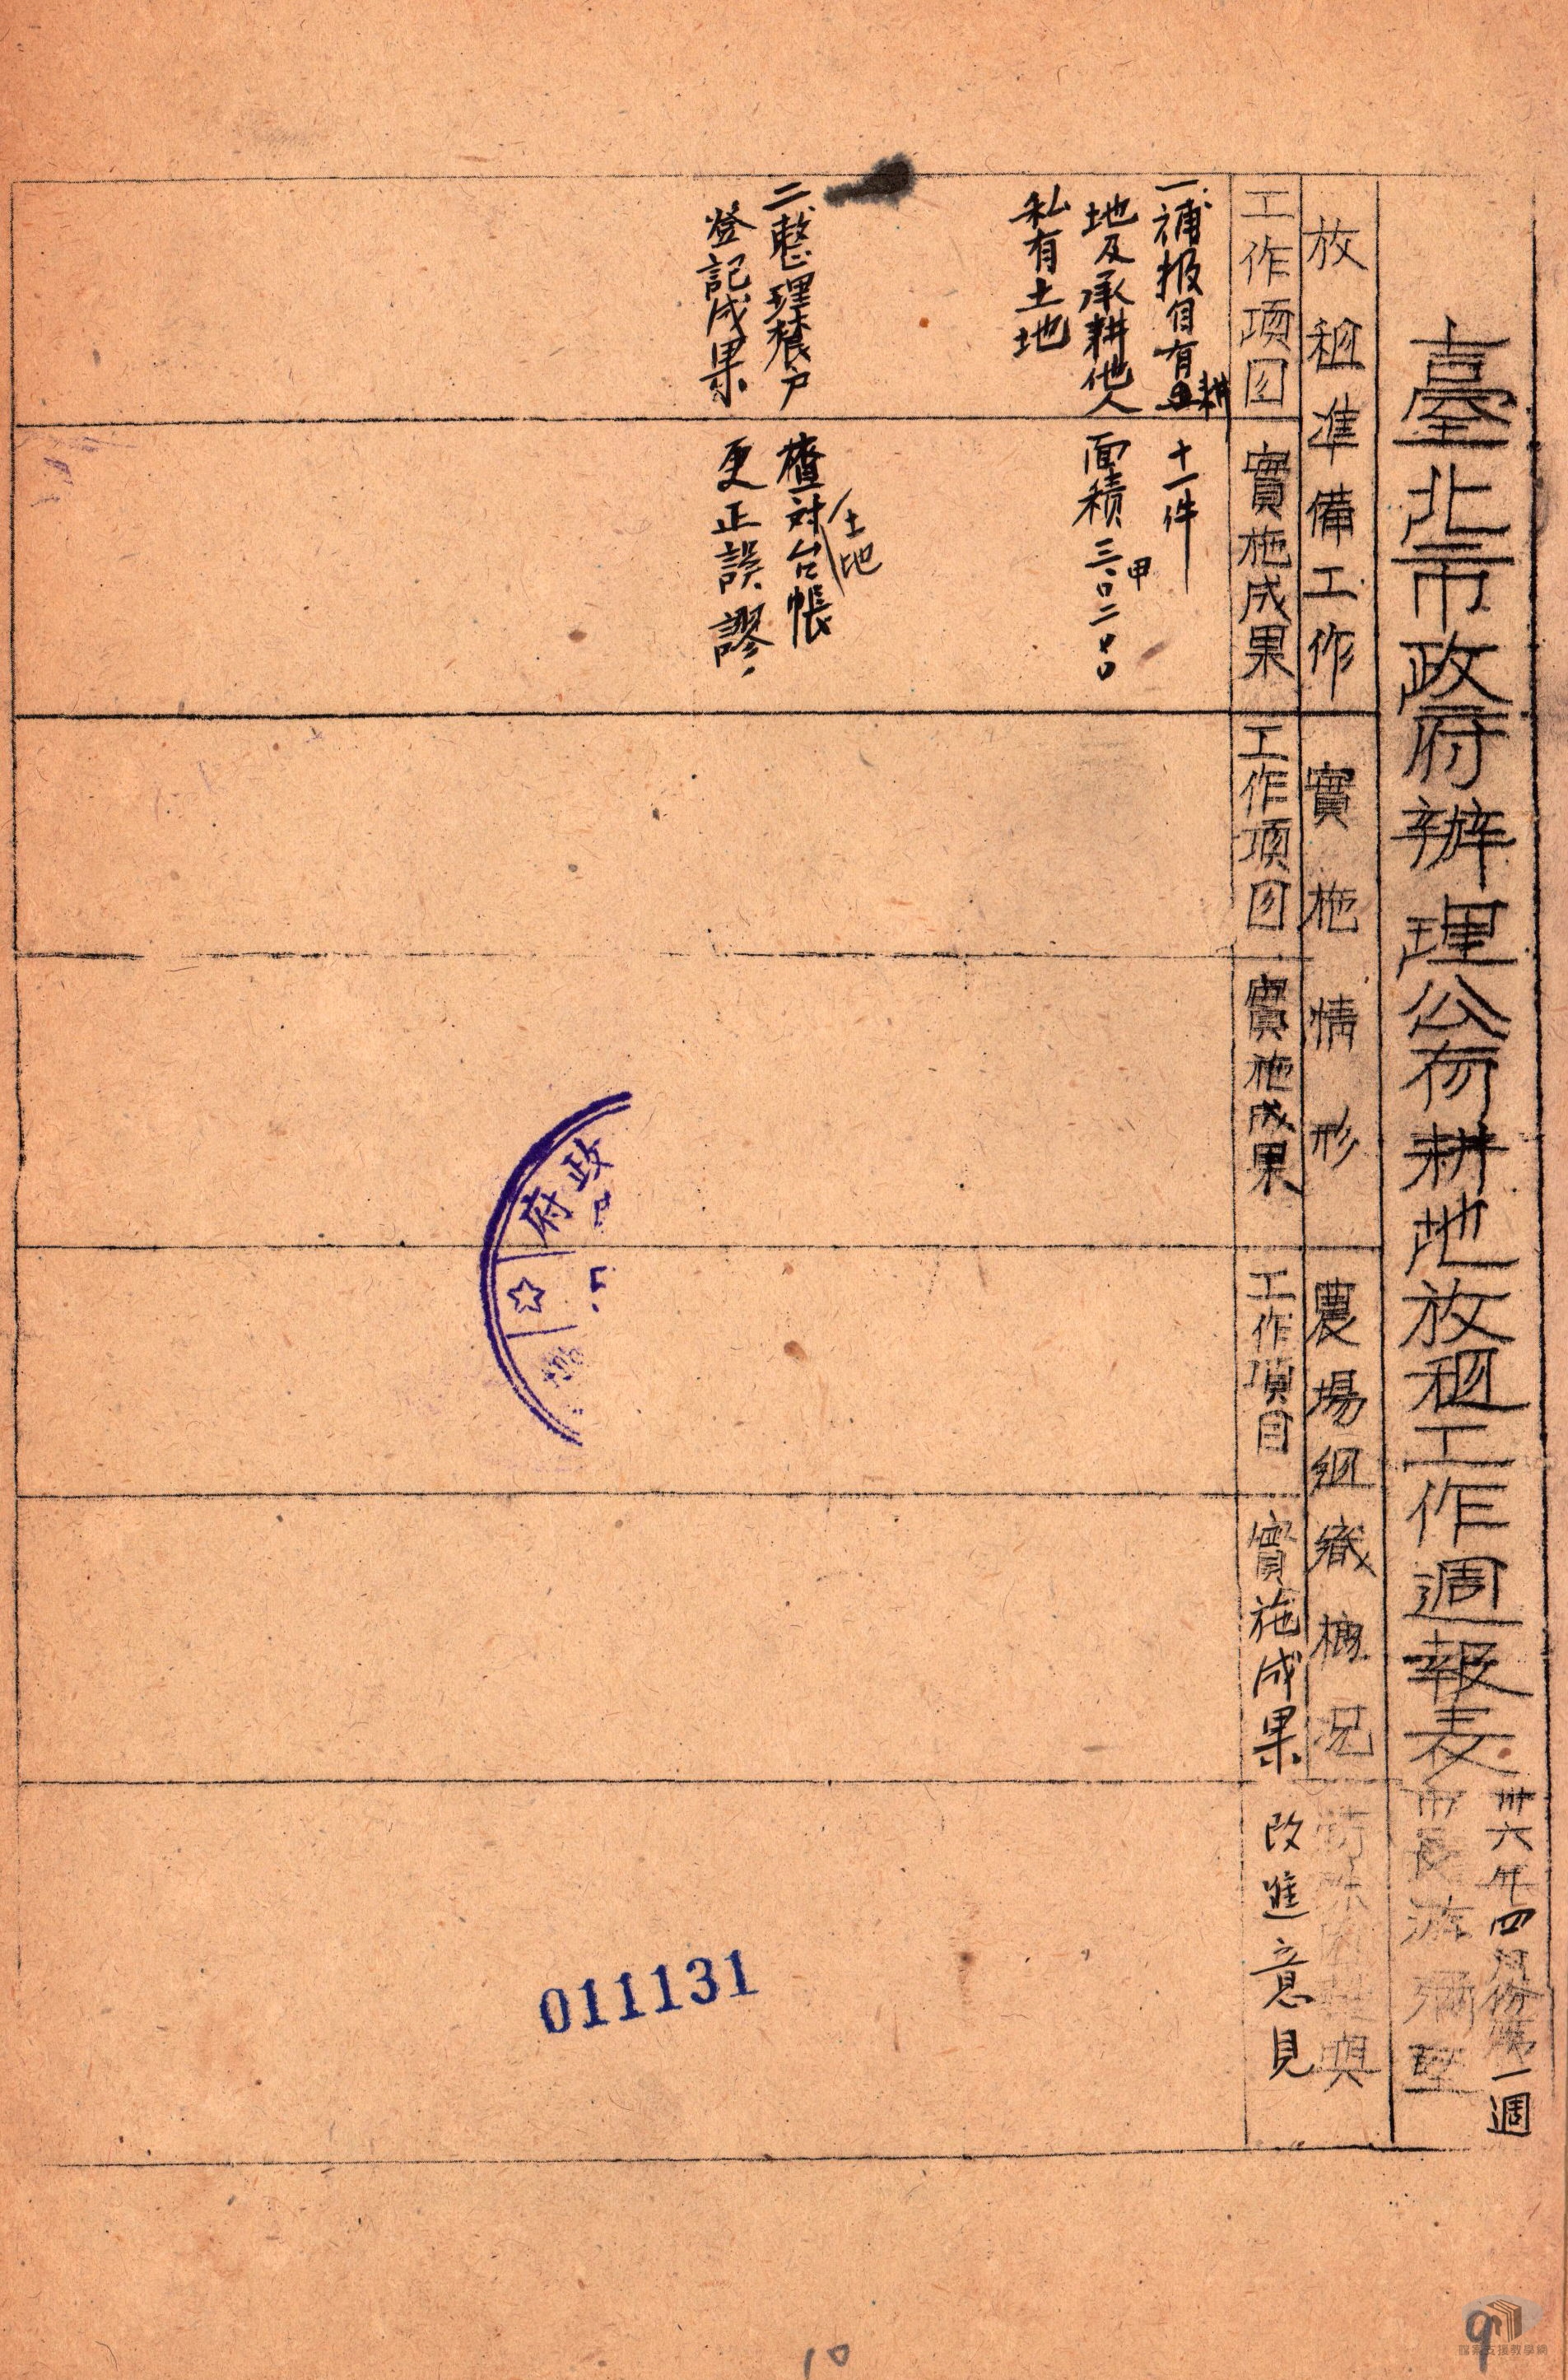 臺北市政府辦理公有耕地放租工作週報表
卅六年四月份第一週
市長游彌堅
放租準備工作
實施情形
農場組織概況
工作項目
實施成果
工作項目
實施成果
工作項目
實施成果
改進意見
一、補报自有耕
地及承耕他人
私有土地
十一件
面積三.〇二七〇
甲
二、整理農户
登記成果
檢对台帳
土地
更正誤謬
政
府
011131
10
9
檔案支援教學網